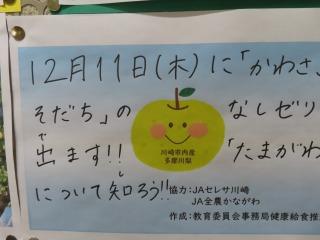 12月11日(木)に「かわさ
そだち」の なしゼリ
出ます!! 「たまがわ
で
川崎市内産
多摩川梨
について知ろう!!
し
協力:JAセレサ川崎
JA全農かながわ
作成:教育委員会事務局健康給食推